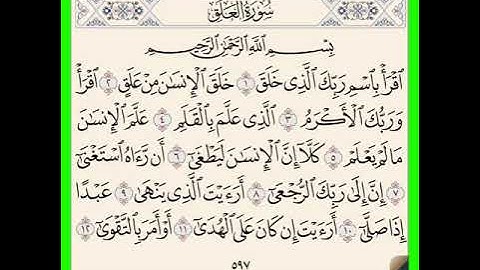 سُورَةُ العَلَقِ
بِسْمِ اللَّهِ الرَّحْمَٰنِ الرَّحِيمِ
اقْرَأْ بِاسْمِ رَبِّكَ الَّذِي خَلَقَ ١ خَلَقَ الْإِنسَانَ مِنْ عَلَقٍ ٢ اقْرَأْ
وَرَبُّكَ الْأَكْرَمُ ٣ الَّذِي عَلَّمَ بِالْقَلَمِ ٤ عَلَّمَ الْإِنسَانَ
مَا لَمْ يَعْلَمْ ٥ كَلَّا إِنَّ الْإِنسَانَ لَيَطْغَىٰ ٦ أَن رَّءَاهُ اسْتَغْنَىٰ
٧ إِنَّ إِلَىٰ رَبِّكَ الرُّجْعَىٰ ٨ أَرَءَيْتَ الَّذِي يَنْهَىٰ ٩ عَبْدًا
إِذَا صَلَّىٰ ١٠ أَرَءَيْتَ إِن كَانَ عَلَى الْهُدَىٰ ١١ أَوْ أَمَرَ بِالتَّقْوَىٰ ١٢
٥٩٧